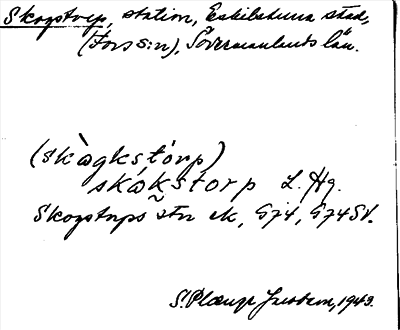 Skogstorp, station, Eskilstuna stad,
(Fors s:n), Södermanlands län.
(skò̀gkstórp)
skåkstorp L. Hg.
Skogstorps stn ek, G74, G74SV.
S. Plænge Jacobson, 1943.